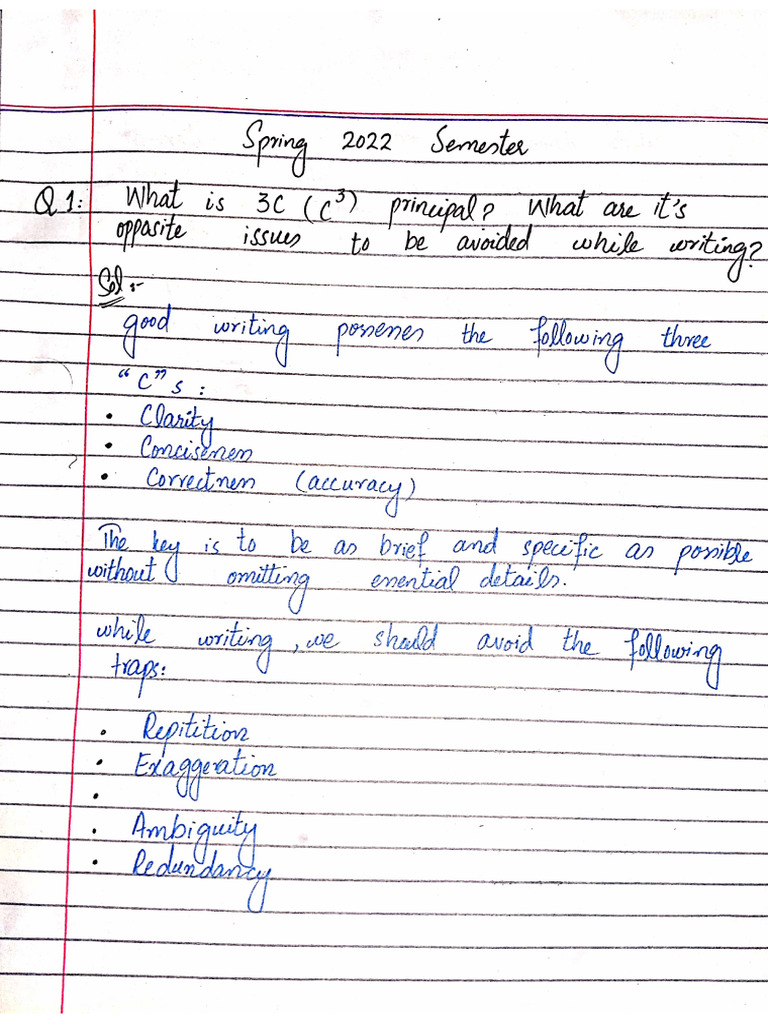 Spring 2022 Semester
Q1: What is 3C (C³) principal? What are it's
oppasite issues to be avoided while writing?
Sol:-
good writing possesses the following three
"C"s :
• Clarity
• Conciseness
• Correctness (accuracy)
The key is to be as brief and specific as possible
without omitting essential details.
while writing, we should avoid the following
traps:
• Repitition
• Exaggeration
•
• Ambiguity
• Redundancy